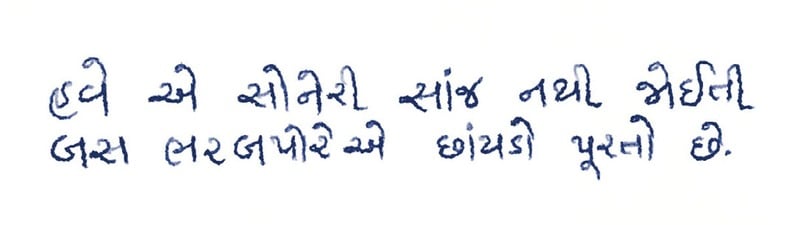 હવે એ સોનેરી સાંજ નથી જોઈતી
બસ ભરબપોરેએ છાંયડો પૂરતો છે.